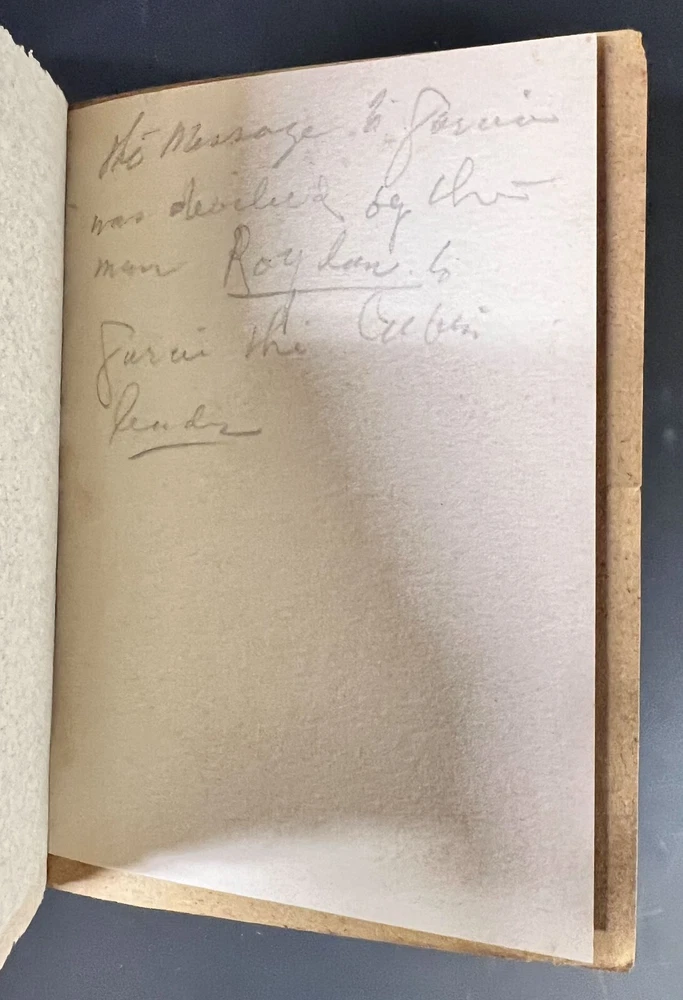 the Message to Garcia
was delivered by the
man Roylan. to
Garcia the Cuban
leader